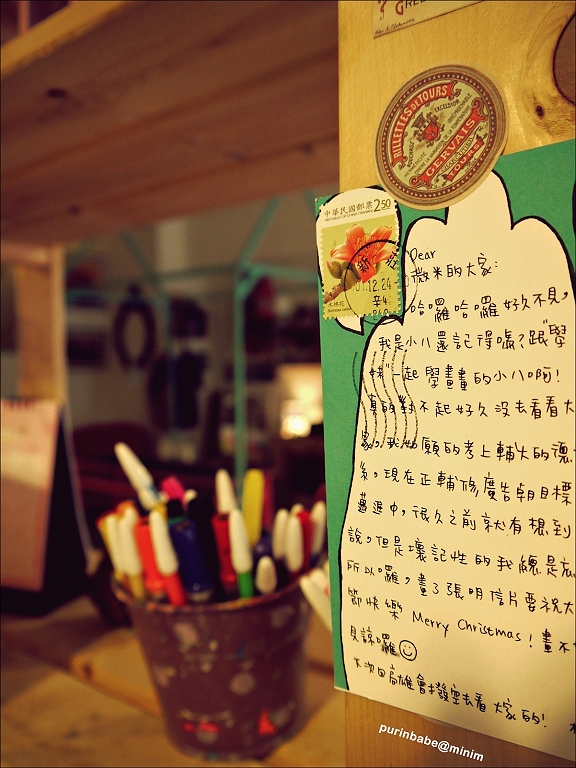 RILLETTES DE TOURS
EXCELSIOR
GERVAIS
TOURS
中華民國郵票 250
REPUBLIC OF CHINA (TAIWAN)
12.24
木棉花
Dear
微米的大家:
哈囉哈囉好久不見,
我是小八還記得嗎?跟學
妹一起學畫畫的小八啊!
真的對不起好久沒去看看大
家,我如願的考上輔大的德
系,現在正輔修廣告朝目標
邁進中,很久之前就有想到
說,但是壞記性的我總是忘
所以囉,畫了張明信片要祝大
節快樂 Merry Christmas! 畫不
見諒囉
下次回高雄會找發空去看大家的!
purinbabe@minim